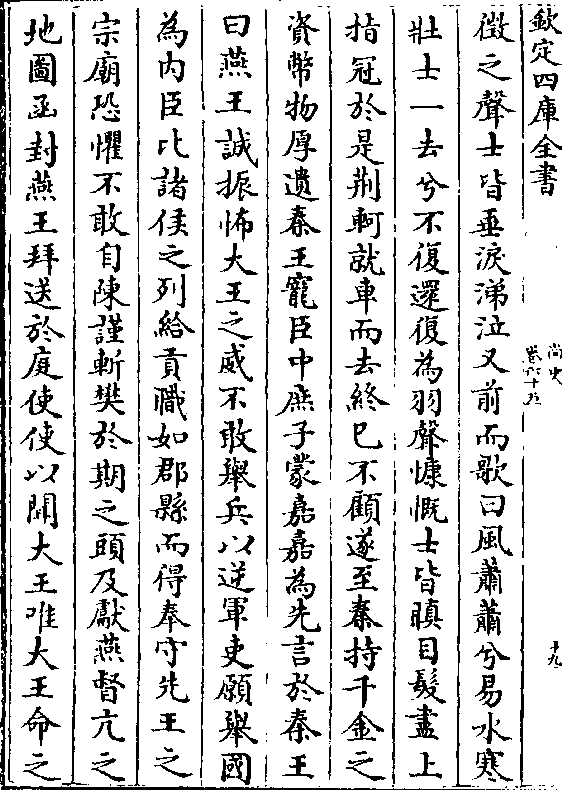 欽定四庫全書
尚史
卷六十五
十九
徵之聲士皆垂淚涕泣又前而歌曰風蕭蕭兮易水寒
壯士一去兮不復還復為羽聲慷慨士皆瞋目髮盡上
指冠於是荆軻就車而去終已不顧遂至秦持千金之
資幣物厚遺秦王寵臣中庶子蒙嘉嘉為先言於秦王
曰燕王誠振怖大王之威不敢舉兵以逆軍吏願舉國
為内臣比諸侯之列給貢職如郡縣而得奉守先王之
宗廟恐懼不敢自陳謹斬樊於期之頭及獻燕督亢之
地圖函封燕王拜送於庭使使以聞大王唯大王命之